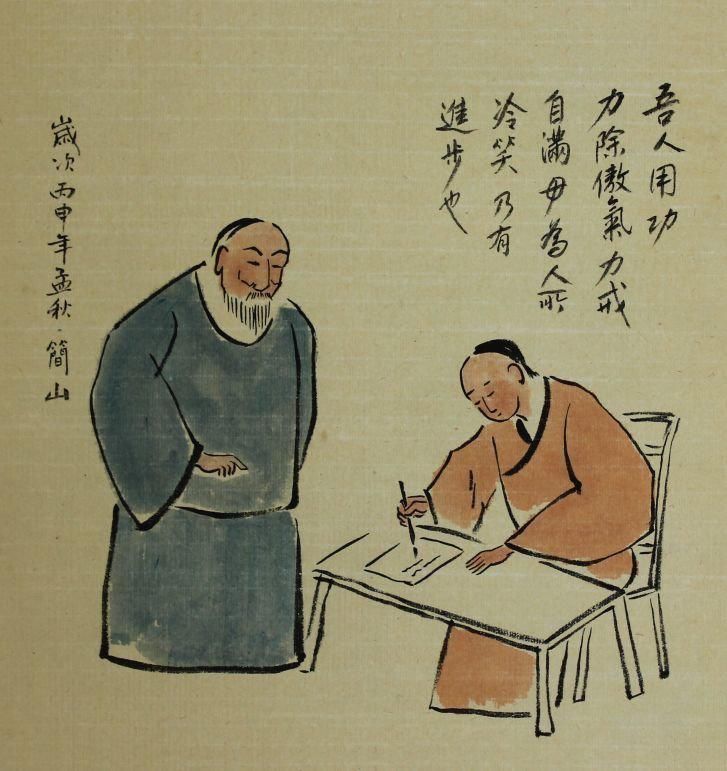 吾人用功
力除傲氣力戒
自滿毋為人所
冷笑乃有
進步也
歲次丙申年孟秋·簡山